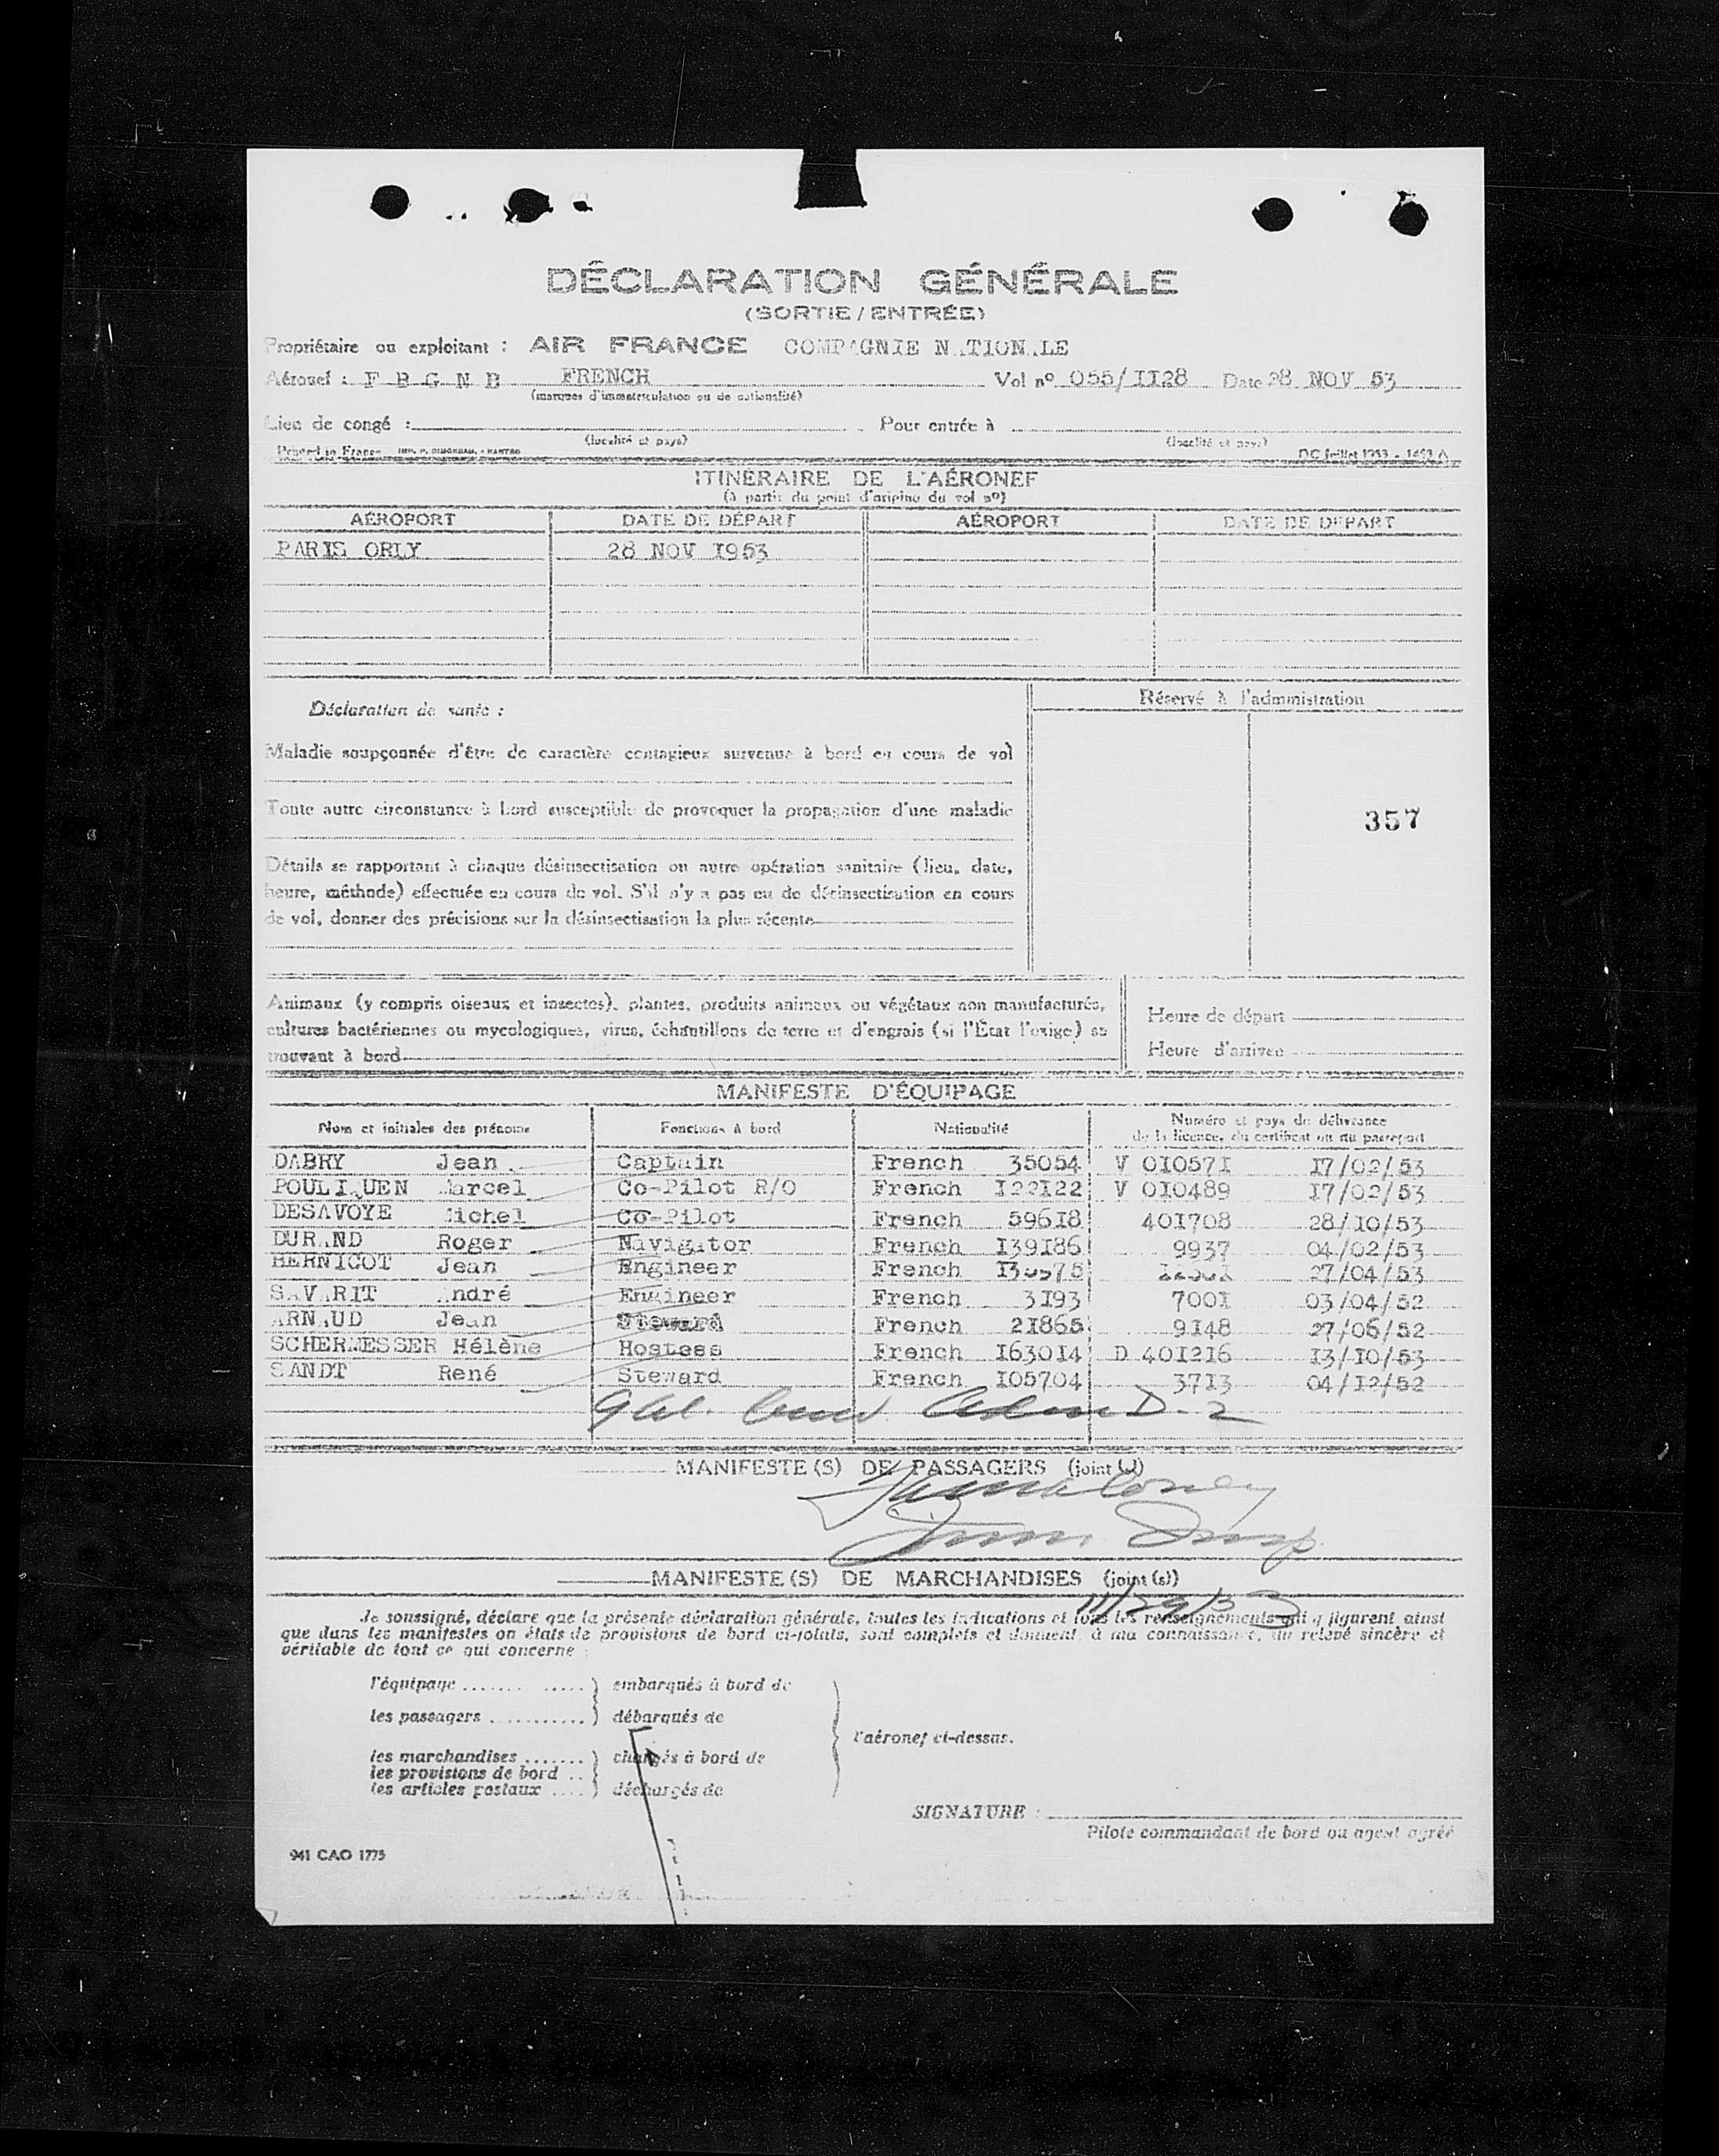 DÉCLARATION GÉNÉRALE
(SORTIE / ENTRÉE)
Propriétaire ou exploitant : AIR FRANCE COMPAGNIE NATIONALE
Aéronef : F B G N B FRENCH Vol nº 055/II28 Date 28 NOV 53
(marques d'immatriculation ou de nationalité)
Lieu de congé : Pour entrée à
(localité et pays) (localité et pays)
Printed in France DC Juillet 1953 - 1453 A
ITINÉRAIRE DE L'AÉRONEF
(à partir du point d'origine du vol nº)
AÉROPORT DATE DE DÉPART AÉROPORT DATE DE DÉPART
PARIS ORLY 28 NOV I953
Déclaration de santé : Réservé à l'administration
Maladie soupçonnée d'être de caractère contagieux survenue à bord en cours de vol
Toute autre circonstance à bord susceptible de provoquer la propagation d'une maladie
357
Détails se rapportant à chaque désinsectisation ou autre opération sanitaire (lieu, date,
heure, méthode) effectuée en cours de vol. S'il n'y a pas eu de désinsectisation en cours
de vol, donner des précisions sur la désinsectisation la plus récente
Animaux (y compris oiseaux et insectes), plantes, produits animaux ou végétaux non manufacturés,
cultures bactériennes ou mycologiques, virus, échantillons de terre et d'engrais (si l'État l'exige) se
trouvant à bord
Heure de départ
Heure d'arrivée
MANIFESTE D'ÉQUIPAGE
Nom et initiales des prénoms Fonctions à bord Nationalité Numéro et pays de délivrance
de la licence, du certificat ou du passeport
DABRY Jean Captain French 35054 V 0I057I I7/02/53
POULIQUEN Marcel Co-Pilot R/O French I22I22 V 0I0489 I7/02/53
DESAVOYE Michel Co-Pilot French 596I8 40I708 28/I0/53
DURAND Roger Navigator French I39I86 9937 04/02/53
BERNICOT Jean Engineer French 27/04/53
SAVARIT André Engineer French 3I93 700I 03/04/52
ARNAUD Jean Steward French 2I865 9I48 27/06/52
SCHERMESSER Hélène Hostess French I630I4 D 40I2I6 I3/I0/53
SANDT René Steward French I05704 37I3 04/I2/52
D-2
MANIFESTE(S) DE PASSAGERS (joint (s))
MANIFESTE(S) DE MARCHANDISES (joint (s))
11/29/53
Je soussigné, déclare que la présente déclaration générale, toutes les indications et tous les renseignements qui y figurent ainsi
que dans les manifestes ou états de provisions de bord ci-joints, sont complets et donnent, à ma connaissance, un relevé sincère et
véritable de tout ce qui concerne :
l'équipage ............ embarqués à bord de
les passagers ............ débarqués de
l'aéronef ci-dessus.
les marchandises ....... chargés à bord de
les provisions de bord ..
les articles postaux .... déchargés de
SIGNATURE :
Pilote commandant de bord ou agent agréé
941 CAO 1775